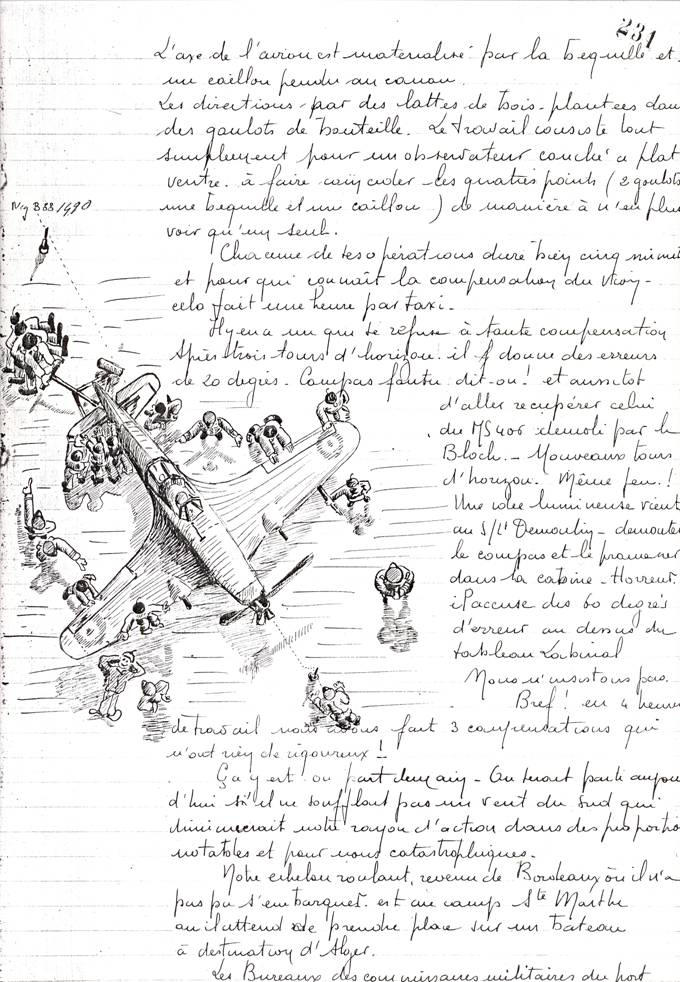 231
L'axe de l'avion est materialisé par la bequille et
un caillou pendu au canon.
Les directions par des lattes de bois plantees dans
des goulots de bouteille. Le travail consiste tout
simplement pour un observateur couché a plat
ventre à faire coïncider les quatres points (2 goulots
une bequille et un caillou) de manière à n'en plus
voir qu'un seul.
Chacune de ces opérations dure bien cinq minut
et pour qui connaît la compensation du
cela fait une heure par taxi.
Il y en a un qui se refuse à toute compensation
Après trois tours d'horizon il donne des erreurs
de 20 degrès. Compas foutu dit-on! et aussitot
d'aller recupérer celui
du MS406 démoli par le
Bloch. Nouveaux tours
d'horizon. Même jeu!
Une idée lumineuse vient
au S/Lt Demoulin demonter
le compas et le promener
dans la cabine. Horreur.
il accuse des 60 degrés
d'erreur au dessus du
tableau Labinal
Nous n'insistons pas.
Bref! en 4 heures
de travail nous avons fait 3 compensations qui
n'ont rien de rigoureux!
Ça y est on part demain. On serait parti aujour
d'hui s'il ne soufflait pas un vent du sud qui
diminuerait notre rayon d'action dans des proportio
notables et pour nous catastrophiques.
Notre echelon roulant, revenu de Bordeaux où il n'a
pas pu s'embarquer est au camp Ste Marthe
où il attend de prendre place sur un bateau
à destination d'Alger.
Les Bureaux des commissaires militaires du port